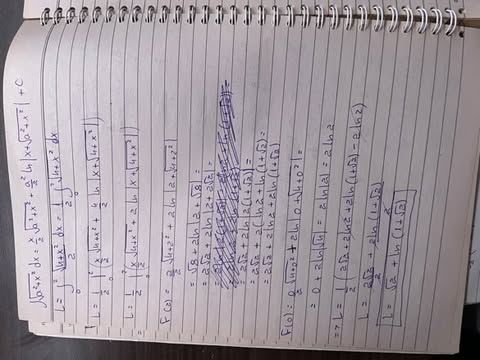 ∫√a²+x² dx = x/2 √a²+x² + a²/2 ln|x+√a²+x²| + C
L = ∫₀² √4+x²/2 dx = 1/2 ∫₀² √4+x² dx
L = 1/2 |₀² (x/2 √4+x² + 4/2 ln|x+√4+x²|)
L = 1/2 |₀² (x/2 √4+x² + 2 ln|x+√4+x²|)
F(2) = 2/2 √4+2² + 2 ln|2+√4+2²|
= √8 + 2ln|2+√8| =
= 2√2 + 2ln|2+2√2| =
= 2√2 + 2ln|2(1+√2)| =
= 2√2 + 2(ln2 + ln(1+√2) =
= 2√2 + 2ln2 + 2ln(1+√2)
F(0) = 0/2 √4+0² + 2ln|0+√4+0²| =
= 0 + 2ln|√4| = 2ln|2| = 2ln2
=> L = 1/2 (2√2 + 2ln2 + 2ln(1+√2) - 2ln2)
L = 2√2/2 + 2ln(1+√2)/2
L = √2 + ln(1+√2)